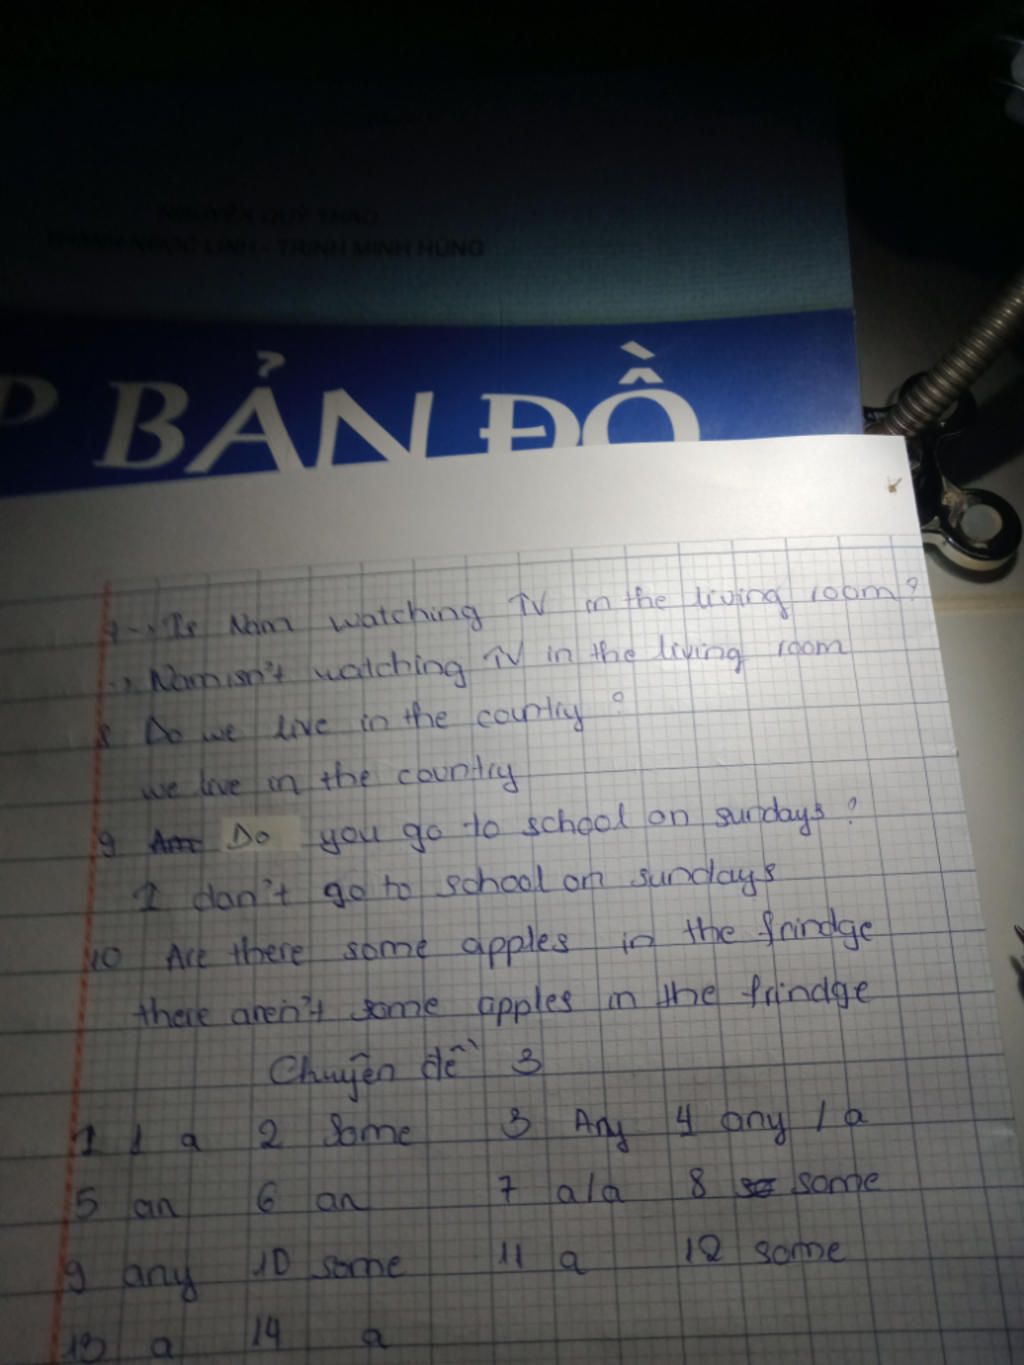 NGUYỄN QUÝ THAO
NGỌC LINH - TRỊNH MINH HÙNG
P BẢN ĐỒ
7 -> Is Nam watching TV in the living room?
-> Nam isn't watching TV in the living room
8 Do we live in the country?
we live in the country
9 Do you go to school on sundays?
I don't go to school on sundays
10 Are there some apples in the frindge
there aren't some apples in the frindge
Chuyên đề 3
1 1 a 2 Some 3 Any 4 any / a
5 an 6 an 7 a/a 8 some
9 any 10 some 11 a 12 some
13 a 14 a